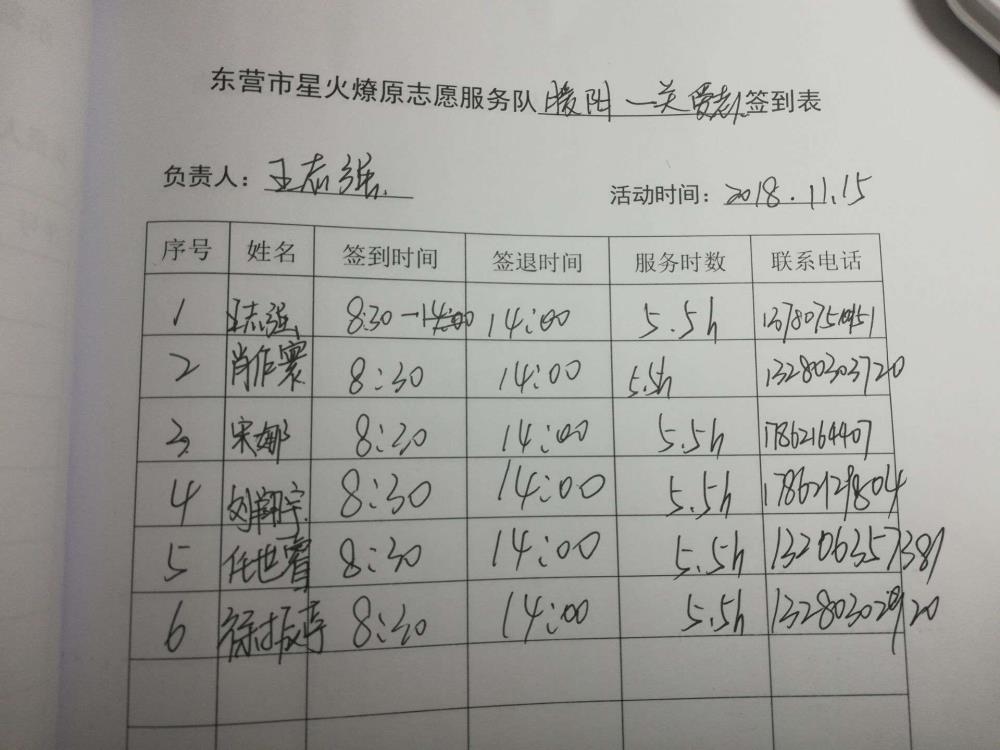 东营市星火燎原志愿服务队暖阳一关爱老人签到表
负责人：王志强
活动时间：2018.11.15
序号 姓名 签到时间 签退时间 服务时数 联系电话
1 王志强 8:30-14:00 14:00 5.5h
2 肖作寰 8:30 14:00 5.5h 13280303720
3 宋娜 8:30 14:00 5.5h 17862164407
4 刘翔宇 8:30 14:00 5.5h 17862129804
5 任世睿 8:30 14:00 5.5h 13206357381
6 徐振亭 8:30 14:00 5.5h